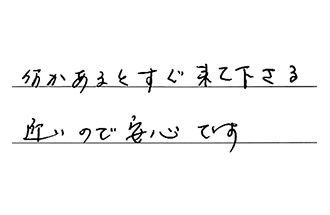 何かあるとすぐ来て下さる
近いので安心です